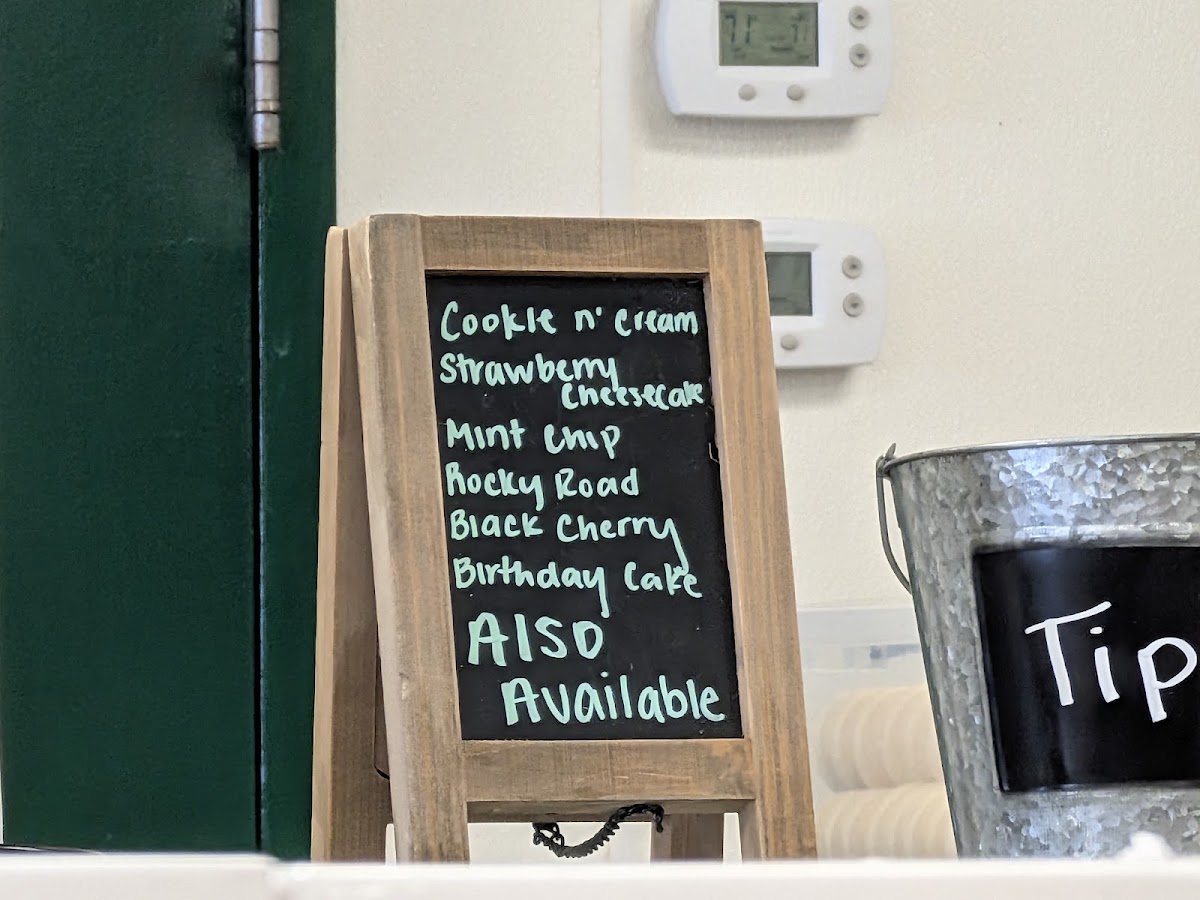 Cookie n' cream
Strawberry
Cheesecake
Mint Chip
Rocky Road
Black Cherry
Birthday Cake
Also
Available
Tip